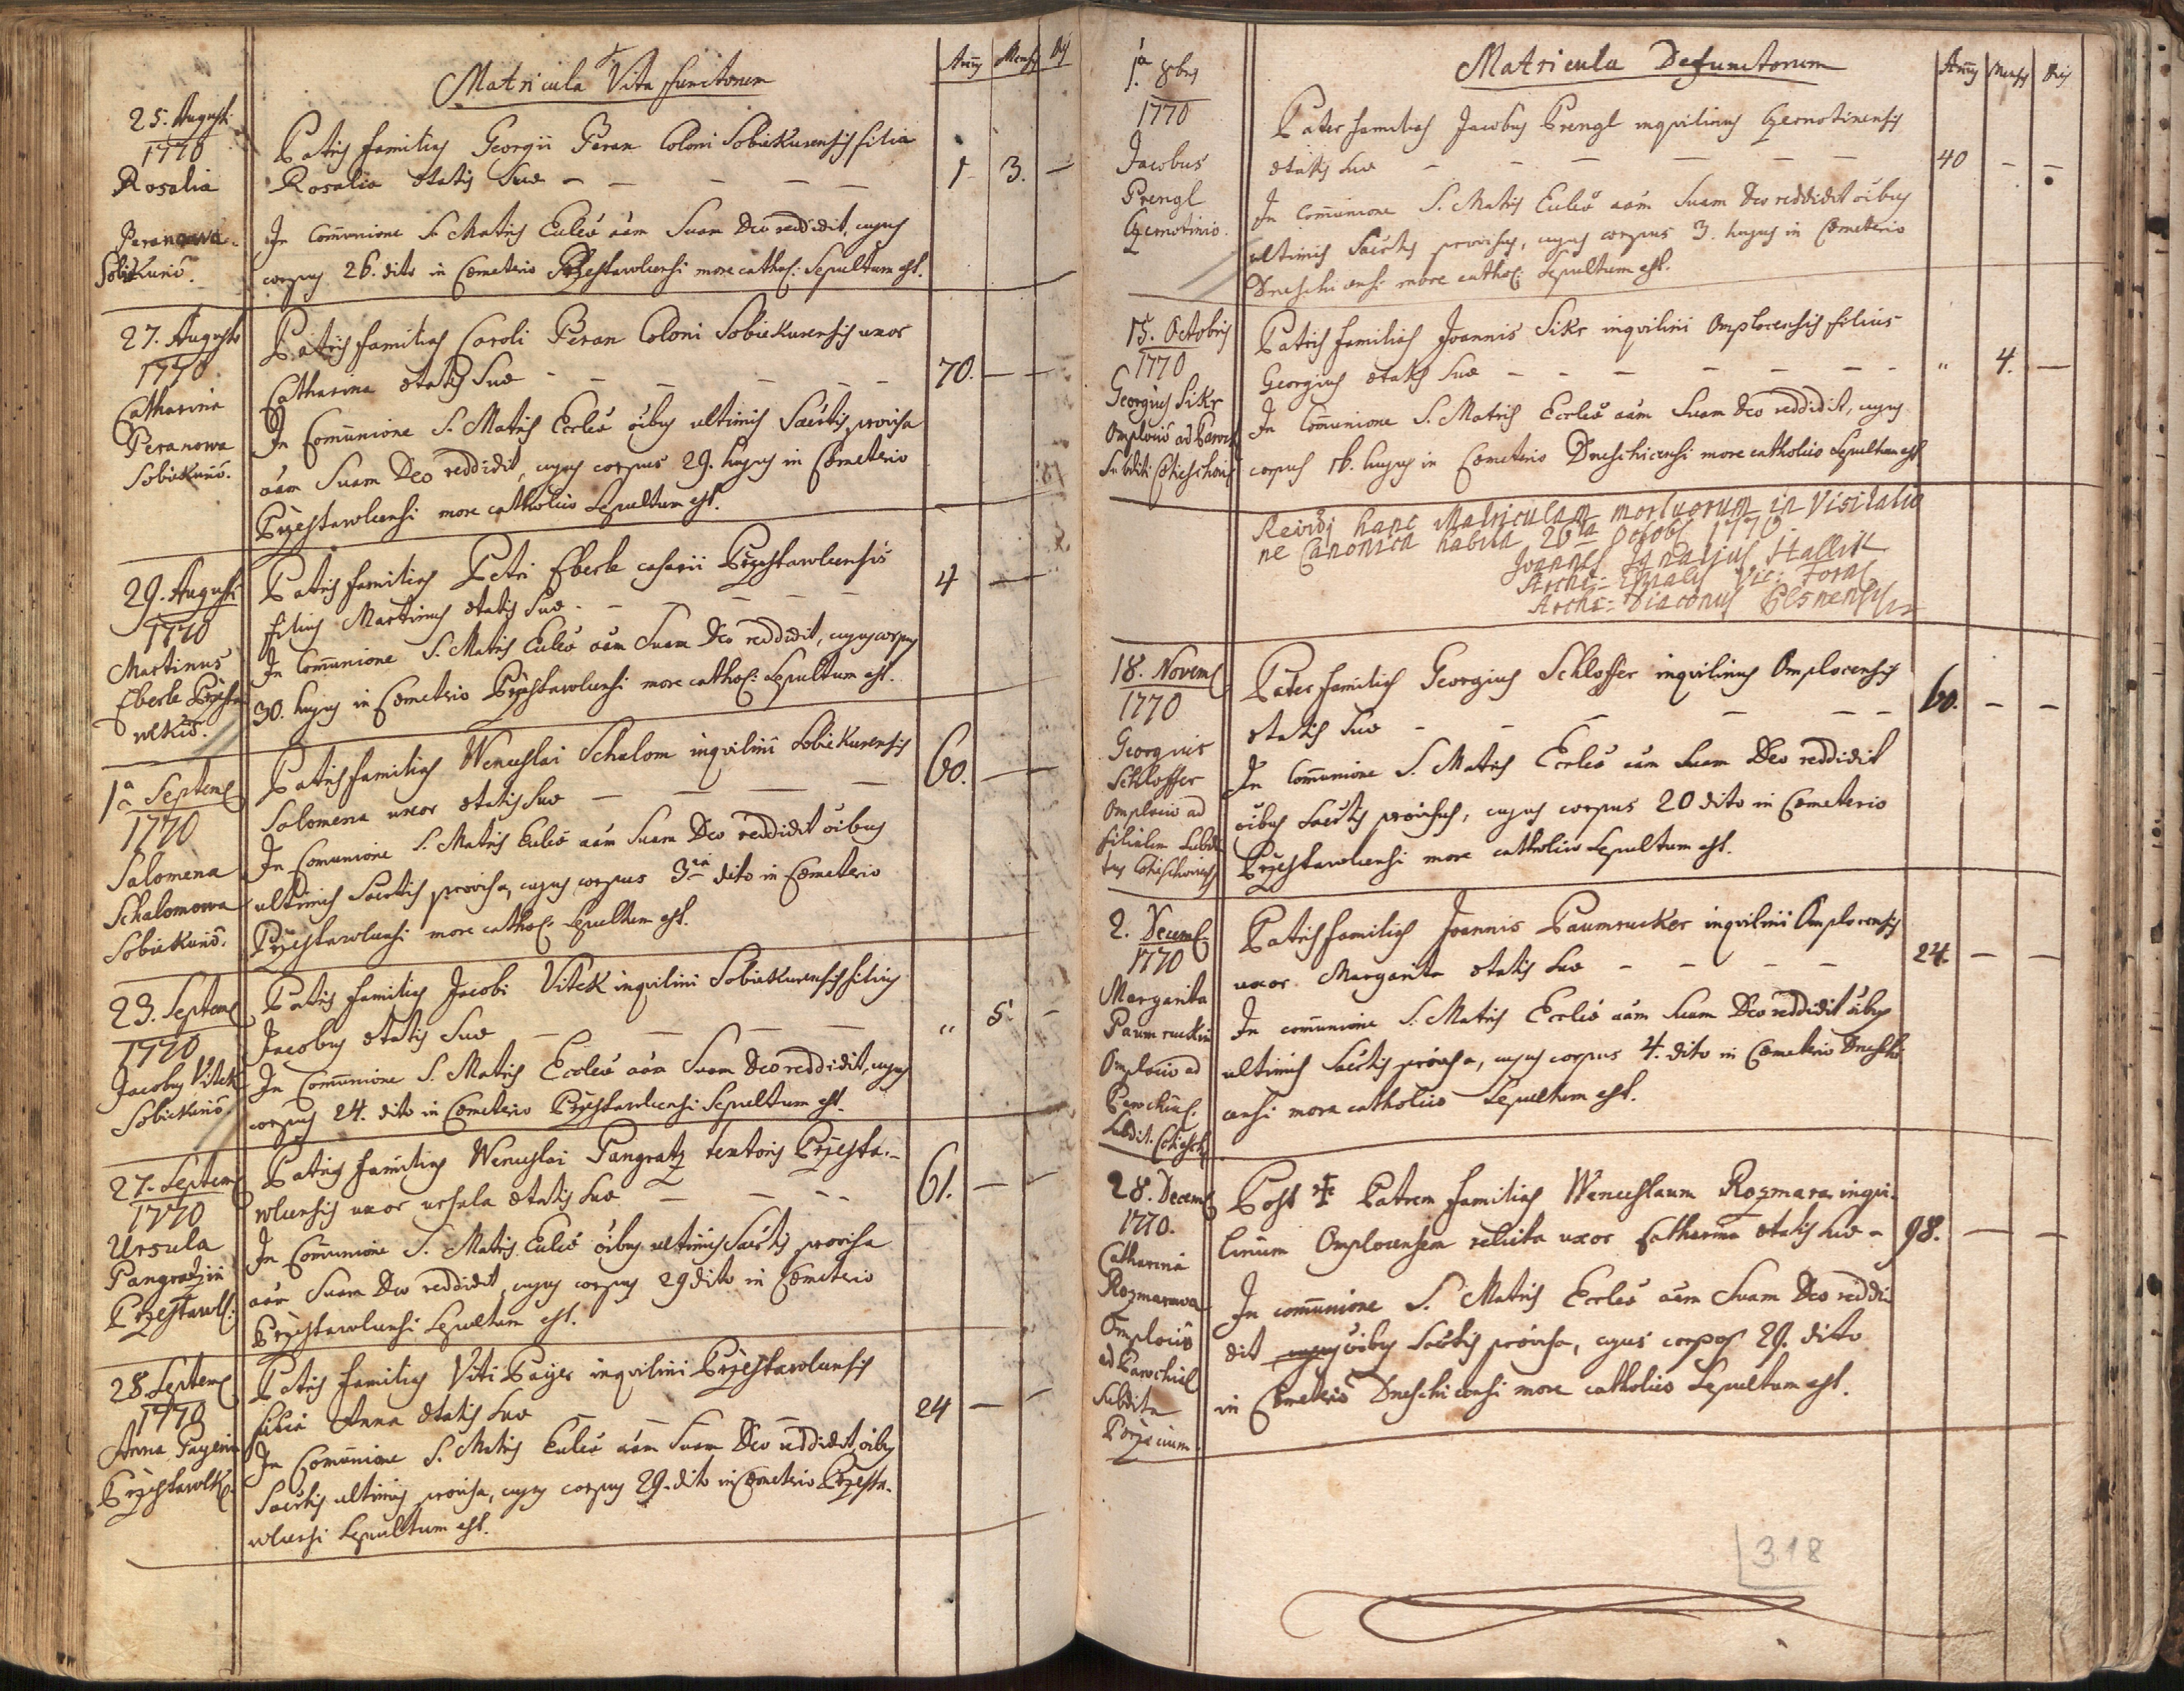 Matricula Vita functorum
Añus Mensis Dies
25. Augusti
1770
Rosalia
Peranowa
Sobiekuriô.
Patris familias Georgii Peran Coloni Sobiekurensis filia
Rosalia ætatis Suæ — — — — — 1 3. —
In Com̃unione S. Matris Ecclæ aãm Suam Deo reddidit, cujus
corpus 26. dito in Cœmeterio Przestawlcensi more cathol: Sepultum est.
27. Augusti
1770
Catharina
Peranowa
Sobiekuriô.
Patris familias Caroli Peran Coloni Sobiekurensis uxor
Catharina ætatis Suæ - — — — — — 70. — —
In Com̃unione S. Matris Eccleæ õibus ultimis Sacrtis provisa
aãm Suam Deo reddidit, cujus corpus 29. hujus in Cœmeterio
Przestawlcensi more catholico Sepultum est.
29. Augusti
1770
Martinus
Eberle Przesta
wlkiô.
Patris familias Petri Eberle casarii Przestawlcensis
filius Martinus ætatis Suæ - — — — — — 4 —
In Com̃unione S. Matris Ecclæ aãm Suam Deo reddidit, cujus corpus
30. hujus in Cœmeterio Przestawlcensi more cathol: Sepultum est.
1ª Septemb
1770
Salomena
Schalomowa
Sobiekuriô.
Patris familias Wenceslai Schalom inqvilini Sobiekurensis
Salomena uxor ætatis Suæ — — — — 60. — —
In Com̃unione S. Matris Ecclæ aãm Suam Deo reddidit õibus
ultimis Sacrtis provisa, cujus corpus 3tia dito in Cœmeterio
Przestawlcensi more cathol: Sepultum est.
23. Septemb
1770
Jacobus Vitek
Sobiekuriô
Patris familias Jacobi Vitek inqvilini Sobiekurensis filius
Jacobus ætatis Suæ — — — — " 5. —
In Com̃unione S. Matris Eccleæ aãm Suam Deo reddidit, cujus
corpus 24. dito in Cœmeterio Przestawlcensi Sepultum est.
27. Septemb
1770
Ursula
Pangratzin
Przestawl:
Patris familias Wenceslai Pangratz textoris Przesta-
wlcensis uxor ursula ætatis Suæ — — - - 61. — —
In Com̃unione S. Matris Ecclæ õibus ultimis Sacrtis provisa
aãm Suam Deo reddidit, cujus corpus 29 dito in Cœmeterio
Przestawlcensi Sepultum est.
28. Septemb
1770
Anna Payerin
Przestawlk
Patris familias Viti Payer inqvilini Przestawlcensis
filia Anna ætatis Suæ — — — — 24 — —
In Com̃unione S. Matris Ecclæ aãm Suam Deo reddidit, õibus
Sacrtis ultimis provisa, cujus corpus 29. dito in Cœmeterio Przesta-
wlcensi Sepultum est.
Matricula Defunctorum
Añus Mensis Dies
1ª 8bris
1770
Jacobus
Prengl
Czernotiniô.
Pater familias Jacobus Prengl inqvilinus Czernotinensis
ætatis Suæ — — — — — — 40 — —
In Com̃unione S. Matris Ecclæ aãm Suam Deo reddidit õibus
ultimis Sacrtis provisus, cujus corpus 3. hujus in Cœmeterio
Dneschicensi more cathol: Sepultum est.
15. Octobris
1770
Georgius Sikr
Omplociô ad Paroch
Subditi Chieschoviê
Patris familias Joannis Sikr inqvilini Omplocensis filius
Georgius ætatis Suæ - — — — — — - " 4. —
In Com̃unione S. Matris Eccleæ aãm Suam Deo reddidit, cujus
corpus 16. hujus in Cœmeterio Dneschicensi more catholico Sepultum est
Revidi hanc Matriculam mortuorum in Visitatio
ne Canonica habita 26ta Octobr 1770
Joannes Ignatius Hallik
Archi-Epŝalis Vic: Foran
Archi-Diaconus Plsnensis
18. Novemb
1770
Georgius
Schlosser
Omplociô ad
filialem Subdi
tus Chieschoviê
Pater familias Georgius Schlosser inqvilinus Omplocensis
ætatis Suæ - — — — — - 60. — —
In Com̃unione S. Matris Eccleæ aãm Suam Deo reddidit
õibus Sacrtis provisus, cujus corpus 20 dito in Cœmeterio
Przestawlcensi more catholico Sepultum est.
2. Decemb
1770
Margarita
Paumruckin
Omplociô ad
Parochial.
Subdit. Chiesch
Patris familias Joannis Paumrucker inqvilini Omplocensis
uxor Margarita ætatis Suæ — — — — 24. — —
In com̃unione S. Matris Eccleæ aãm Suam Deo reddidit õibus
ultimis Sacrtis provisa, cujus corpus 4. dito in Cœmeterio Dneschi-
censi more catholico Sepultum est.
28. Decemb
1770.
Catharina
Rozmarowa
Omplociô
ad Parochial
Subdita
Porzicium
Post ‡ Patrem familias Wenceslaum Rozmara inqvi-
linum Omplocensem relicta uxor Catharina ætatis suæ - 98. — —
In com̃unione S. Matris Eccleæ aãm Suam Deo reddi-
dit cujus õibus Sacrtis provisa, cujus corpus 29. ditto
in Cœmeterio Dneschicensi more catholico Sepultum est.
318